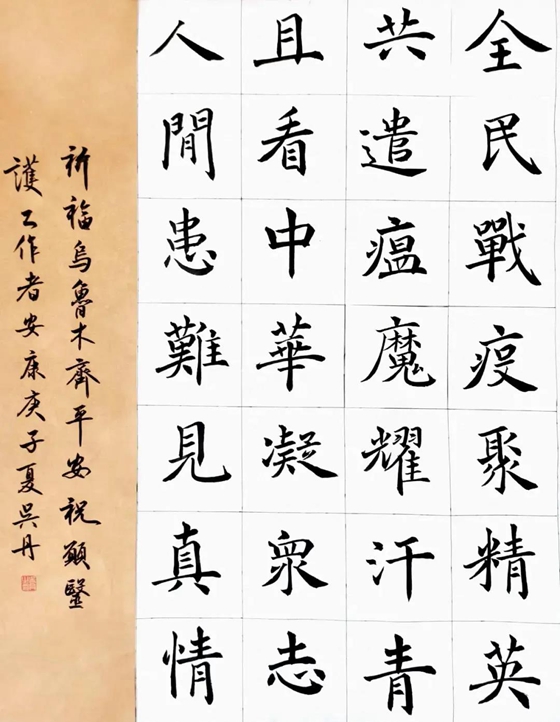 全民戰疫聚精英
共遣瘟魔耀汗青
且看中華凝眾志
人間患難見真情
祈福烏魯木齊平安祝願醫
護工作者安康庚子夏吳丹